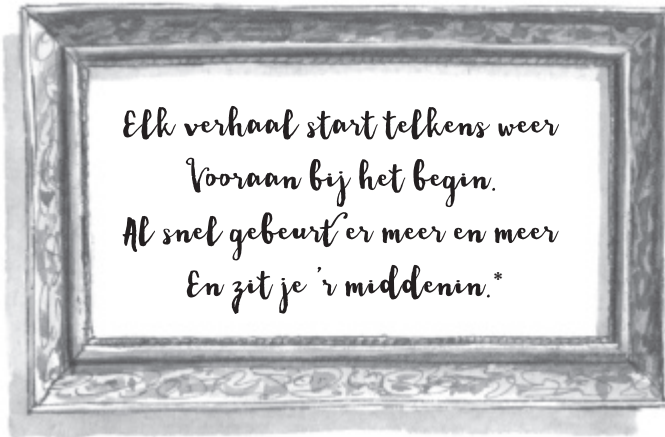 Elk verhaal start telkens weer
Vooraan bij het begin.
Al snel gebeurt er meer en meer
En zit je 'r middenin.*